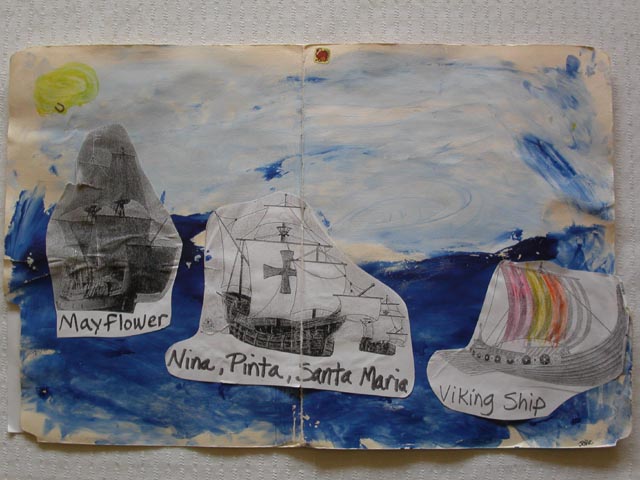 Mayflower
Nina, Pinta, Santa Maria
Viking Ship